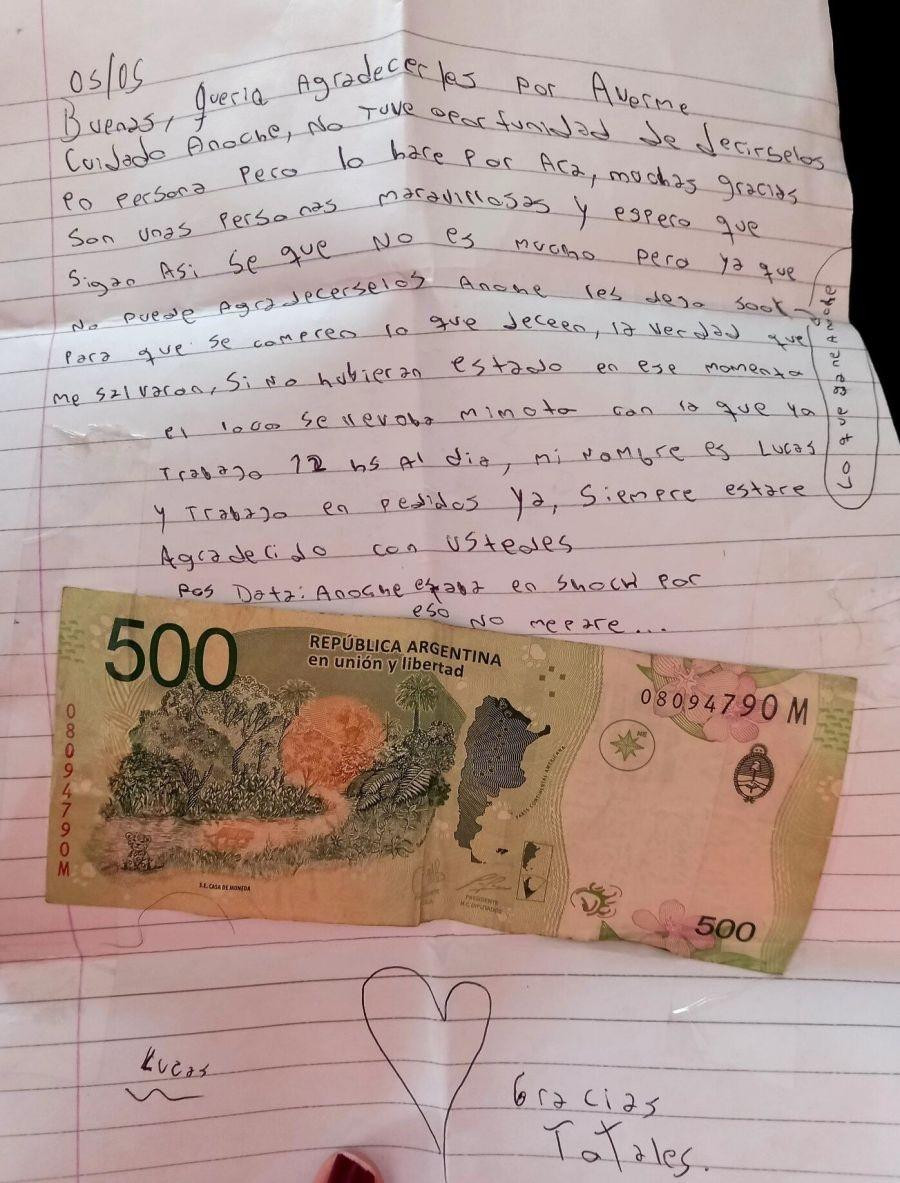 05/05
Buenas, queria Agradecerles por Averme
Cuidado Anoche, No Tuve oportunidad de decirselos
en persona pero lo hare por Aca, muchas gracias
Son unas personas maravillosas y espero que
Sigan Asi Se que No es mucho pero ya que
No puede Agradecerselos Anoche les dejo 500$
Para que se compren lo que deceen, la verdad que
me salvaron, Si No hubieran estado en ese momento
el loco se llevaba mi moto con la que ya
Trabajo 12 hs Al dia, mi Nombre es Lucas
y Trabajo en pedidos ya, Siempre estare
Agradecido con ustedes
Pos Data: Anoche estaba en shock por
eso No me pare...
Lo que gane Anoche
500
REPÚBLICA ARGENTINA
en unión y libertad
08094790 M
08094790M
S.E. CASA DE MONEDA
PRESIDENTE
H.C. DIPUTADOS
500
Lucas
Gracias
Totales.